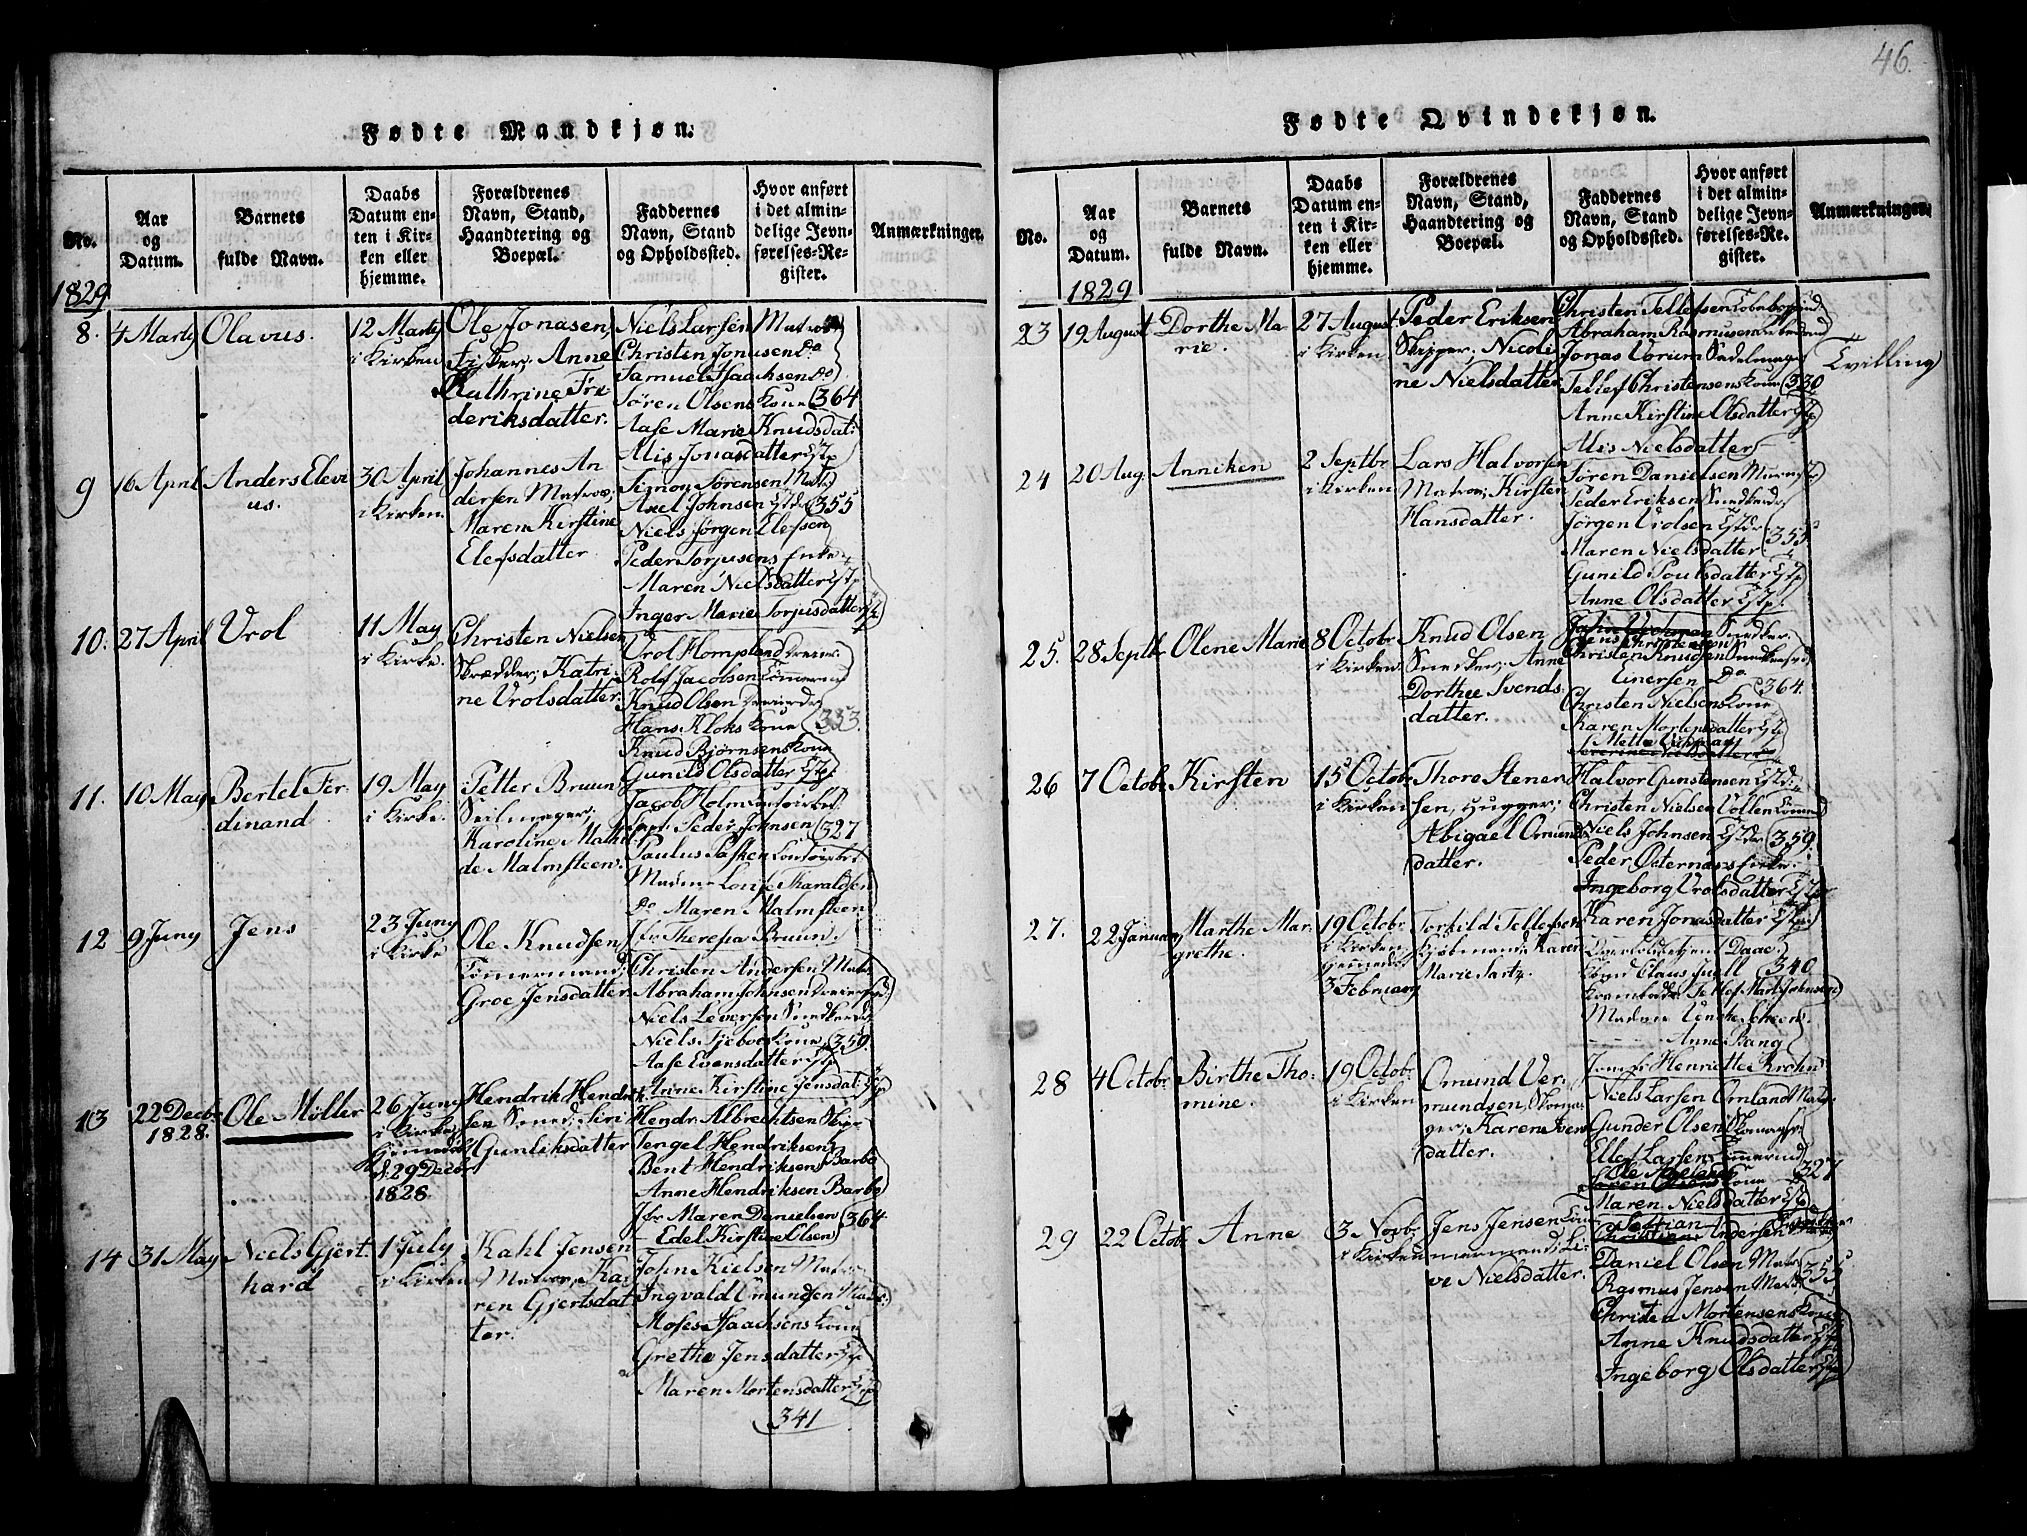 46.
Fødte Mandkjøn.
No.
Aar
og
Datum.
Barnets
fulde Navn.
Daabs
Datum en-
ten i Kir-
ken eller
hjemme.
Forældrenes
Navn, Stand,
Haandtering og
Boepæl.
Faddernes
Navn, Stand
og Opholdssted.
Hvor anført
i det almin-
delige Jevn-
førelses-Re-
gister.
Anmærkninger.
1829
8.
4 Marty
Olavus.
12 Marty
i Kirken
Ole Jonasen,
Fisker, Anne
Kathrine Fre
deriksdatter.
Niels Larsen Matros
Christen Jonusen Do
Samuel Isaachsen Do
Søren Olsens Kone 364
Aase Marie Knudsdat:
Alis Jonasdatter
9
16 April
Anders Elevi
us.
30 April
i Kirken.
Johannes An
dersen Matros;
Maren Kirstine
Elefsdatter
Simon Sørensen Mats
Axel Johnsen 355
Niels Jørgen Elefsen
Peder Torjusens Enke
Maren Nielsdatter
Inger Marie Torjusdatter
10.
27 April
Vrol
11 May
i Kirke.
Christen Nielsen
Skrædder; Katri
ne Vrolsdatter.
Vrol Hompland
Rolf Jacobsen
Knud Olsen
Hans Kloks Kone 353.
Knud Bjørnsens Kone
Gunild Olsdatter
11.
10 May
Bertel Fer
dinand
19 May
i Kirke.
Petter Bruun
Seilmager;
Karoline Mathil
de Malmsteen.
Jacob Holm
Peder Johnsen 327
Paulus Pasken
Madme Louise Tharaldsen
Do Maren Malmsteen
Jfr Theresia Bruun.
12
9 Juny
Jens
23 Juny
i Kirke
Ole Knudsen
Tømermand;
Groe Jensdatter
Christen Andersen Matrs
Abraham Johnsen
Niels Leversen
Niels Tjeboe Kone 359.
Aase Evensdatter
Anne Kirstine Jensdat:
13
22 Decbr
1828.
Ole Møller
26 Juny
i Kirke
hjemmedøbt
d. 29 Decbr
1828
Hendrik Hendrik
sen Smed, Siri
Gunliksdatter
Hendr: Albrechtsen
Tengel Hendriksen
Bent Hendriksen Barbo
Anne Hendriksen Barbo
Jfr Maren Danielsen 364.
Edel Kirstine Olsen
14
31 May
Niels Gjert
hard
1 July
i Kirken
Kahl Jensen
Matros, Ka
ren Gjertsdat
ter.
John Kielsen Matrs
Ingvald Omundsen Matrs:
Moses Isaachsens Kone
Grethe Jensdatter
Maren Mortensdatter
341
Fødte Qvindekjøn.
No.
Aar
og
Datum.
Barnets
fulde Navn.
Daabs
Datum en-
ten i Kir-
ken eller
hjemme.
Forældrenes
Navn, Stand,
Haandtering og
Boepæl.
Faddernes
Navn, Stand
og Opholdssted.
Hvor anført
i det almin-
delige Jevn-
førelses-Re-
gister.
Anmærkninger.
1829
23
19 August
Dorthe Ma-
rie.
27 August
i Kirken
Peder Eriksen
Skipper, Nicoli
ne Nielsdatter
Christen Tellefsen
Abraham Rasmusen
Jonas Vorum Sadelmager
Tellef Christensens Kone 330
Anne Kirstine Olsdatter
Alis Nielsdatter
Tvilling
24
20 Aug.
Anniken
2 Septbr
i Kirken
Lars Halvorsen
Matros; Kirsten
Hansdatter.
Søren Danielsen
Peder Eriksen
Jørgen Violsen 355
Maren Nielsdatter
Gunild Poulsdatter
Anne Olsdatter
25.
28 Septbr
Olene Marie
8 Octobr
i Kirken
Knud Olsen
Snedker, Anne
Dorthee Svends-
datter.
Jens Christensen Snedker
Christen Knudsen
Einersen Do
364.
Christen Nielsens Kone
Karen Mortensdatter
26
7 Octobr
Kirsten
15 Octobr
i Kirken
Thore Stener
sen, Hugger;
Abigael Omunds
datter.
Halvor Gunstensen
Christen Nielsen Vollen
Niels Johnsen 359.
Peder Osternæs Enke
Ingeborg Vrolsdatter
27.
22 January
Marthe Mar:
grethe.
19 Octobr
i Kirken
hjemmedøbt
3 February
Torkild Tellefsen
Kjøbmand; Karen
Marie Sartz.
Karen Jonasdatter
Daae
Claus Juell 340
Madme Scheen
Anne Bang
Jomfr Henriette Krohn
28
4 Octobr
Birthe Tho-
mine.
19 Octobr
i Kirken
Omund Ver
mundsen, Skoma
ger; Karen Iver
datter.
Niels Larsen Omland Matrs
Gunder Olsen Skomager
Ellef Larsen 327
Maren Nielsdatter
29
22 Octobr
Anne
3 Novbr
i Kirken
Jens Jensen Tøm
mermand; Li-
ve Nielsdatter.
Andersen
Daniel Olsen Matrs 355
Rasmus Jensen Matrs
Christen Mortensens Kone
Anne Knudsdatter
Ingeborg Olsdatter